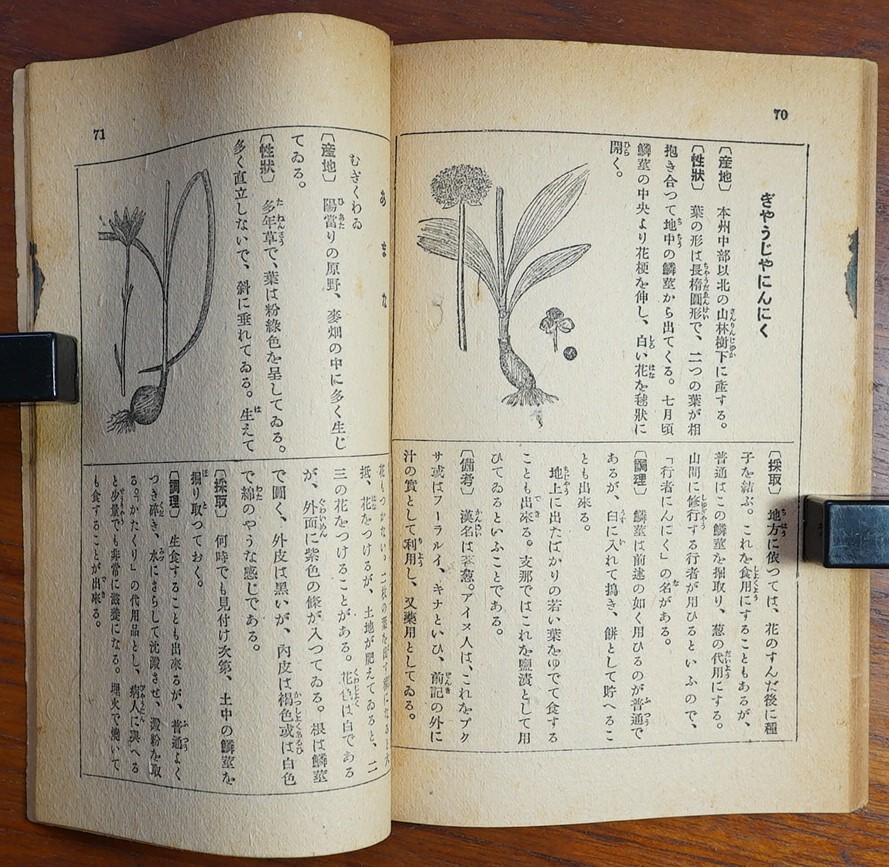 70
ぎやうじやにんにく
〔産地〕 本州中部以北の山林樹下に産する。
〔性狀〕 葉の形は長楕圓形で、二つの葉が相
抱き合つて地中の鱗莖から出てくる。七月頃
鱗莖の中央より花梗を伸し、白い花を毬狀に
開く。
〔採取〕 地方に依つては、花のすんだ後に種
子を結ぶ。これを食用にすることもあるが、
普通はこの鱗莖を掘取り、葱の代用にする。
山間に修行する行者が用ひるといふので、
「行者にんにく」の名がある。
〔調理〕 鱗莖は前述の如く用ひるのが普通で
あるが、臼に入れて搗き、餅として貯へるこ
とも出來る。
地上に出たばかりの若い葉をゆでて食する
ことも出來る。支那ではこれを鹽漬として用
ひてゐるといふことである。
〔備考〕 漢名は茖葱。アイヌ人は、これをプク
サ或はフーラルイ、キナといひ、前記の外に
汁の實として利用し、又藥用としてゐる。
71
あまな
むぎくわゐ
〔産地〕 陽當りの原野、麥畑の中に多く生じ
てゐる。
〔性狀〕 多年草で、葉は粉綠色を呈してゐる。
多く直立しないで、斜に垂れてゐる。生えて
花もつかない。二枚の葉を出す頃になると大
抵、花をつけるが、土地が肥えてゐると、二
三の花をつけることがある。花色は白である
が、外面に紫色の條が入つてゐる。根は鱗莖
で圓く、外皮は黑いが、內皮は褐色或は白色
で綿のやうな感じである。
〔採取〕 何時でも見付け次第、土中の鱗莖を
掘り取つておく。
〔調理〕 生食することも出來るが、普通よく
つき碎き、水にさらして沈澱させ、澱粉を取
る。「かたくり」の代用品とし、病人に與へる
と少量でも非常に滋養になる。埋火で燒いて
も食することが出來る。